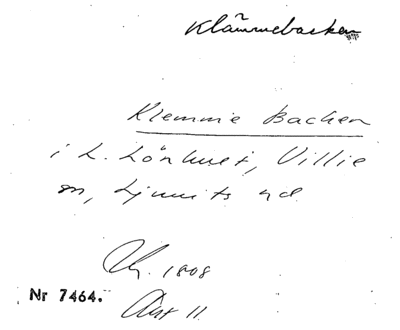 Klämmebacken
Klemmie Backen
i L. Lönhult, Villie
sn, Ljunits hd
1808
Nr 7464.
Akt 11